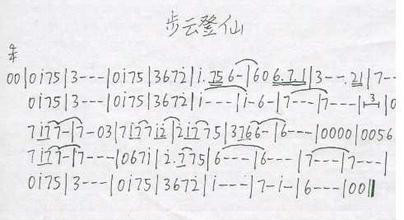 步云登仙
4/4
00|0i75|3---|0i75|367i|i.75 6-|60 6.7.1|3--.21|7--
0i75|3---|0i75|3672|i---|i-6-|7---|7---|3|0
7 i77-|7-03|7 i77 i2|2 i7 75|3766-|6---|0000|0056
7 i77-|7---|067i|2.775|6---|6---|7---|7---|
0i75|3---|0i75|3672|i---|7-i-|6---|00‖